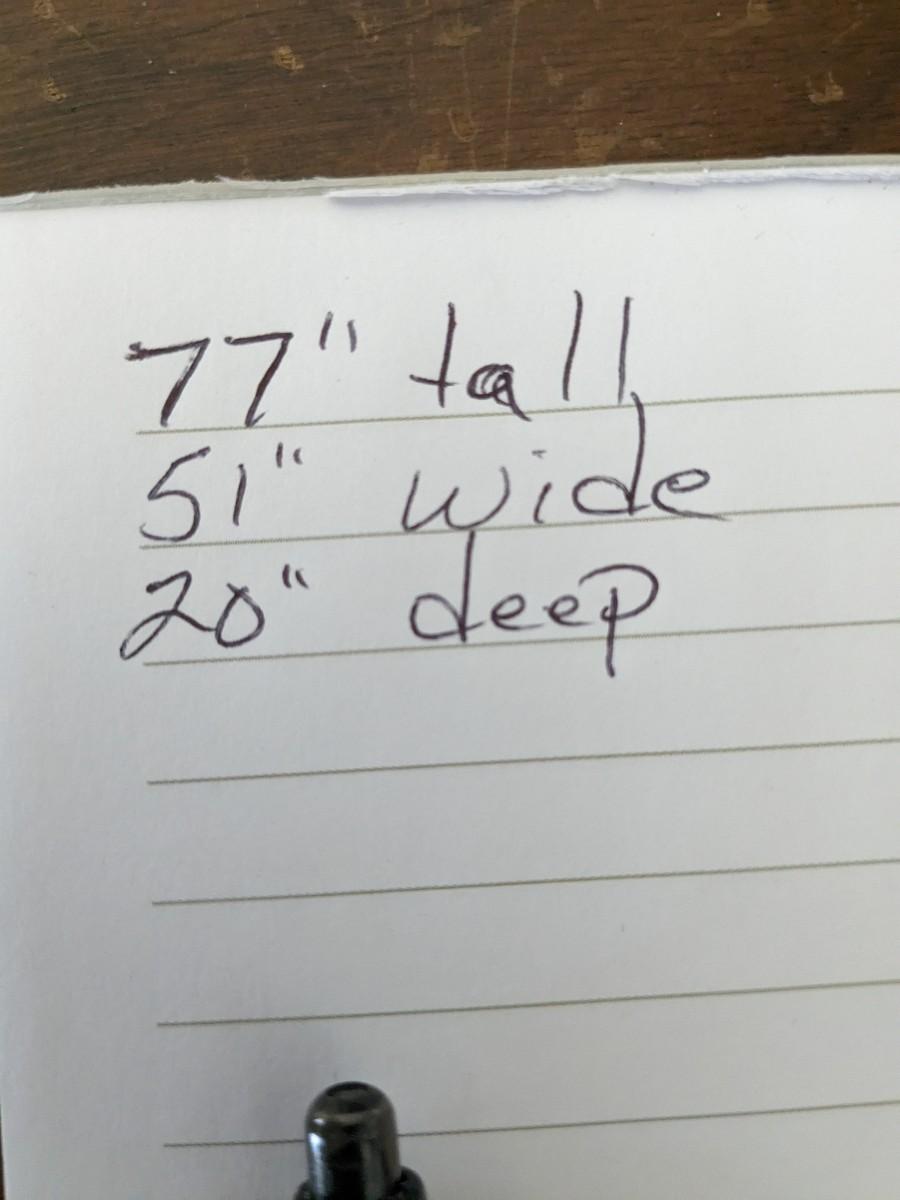 77" tall
51" wide
20" deep